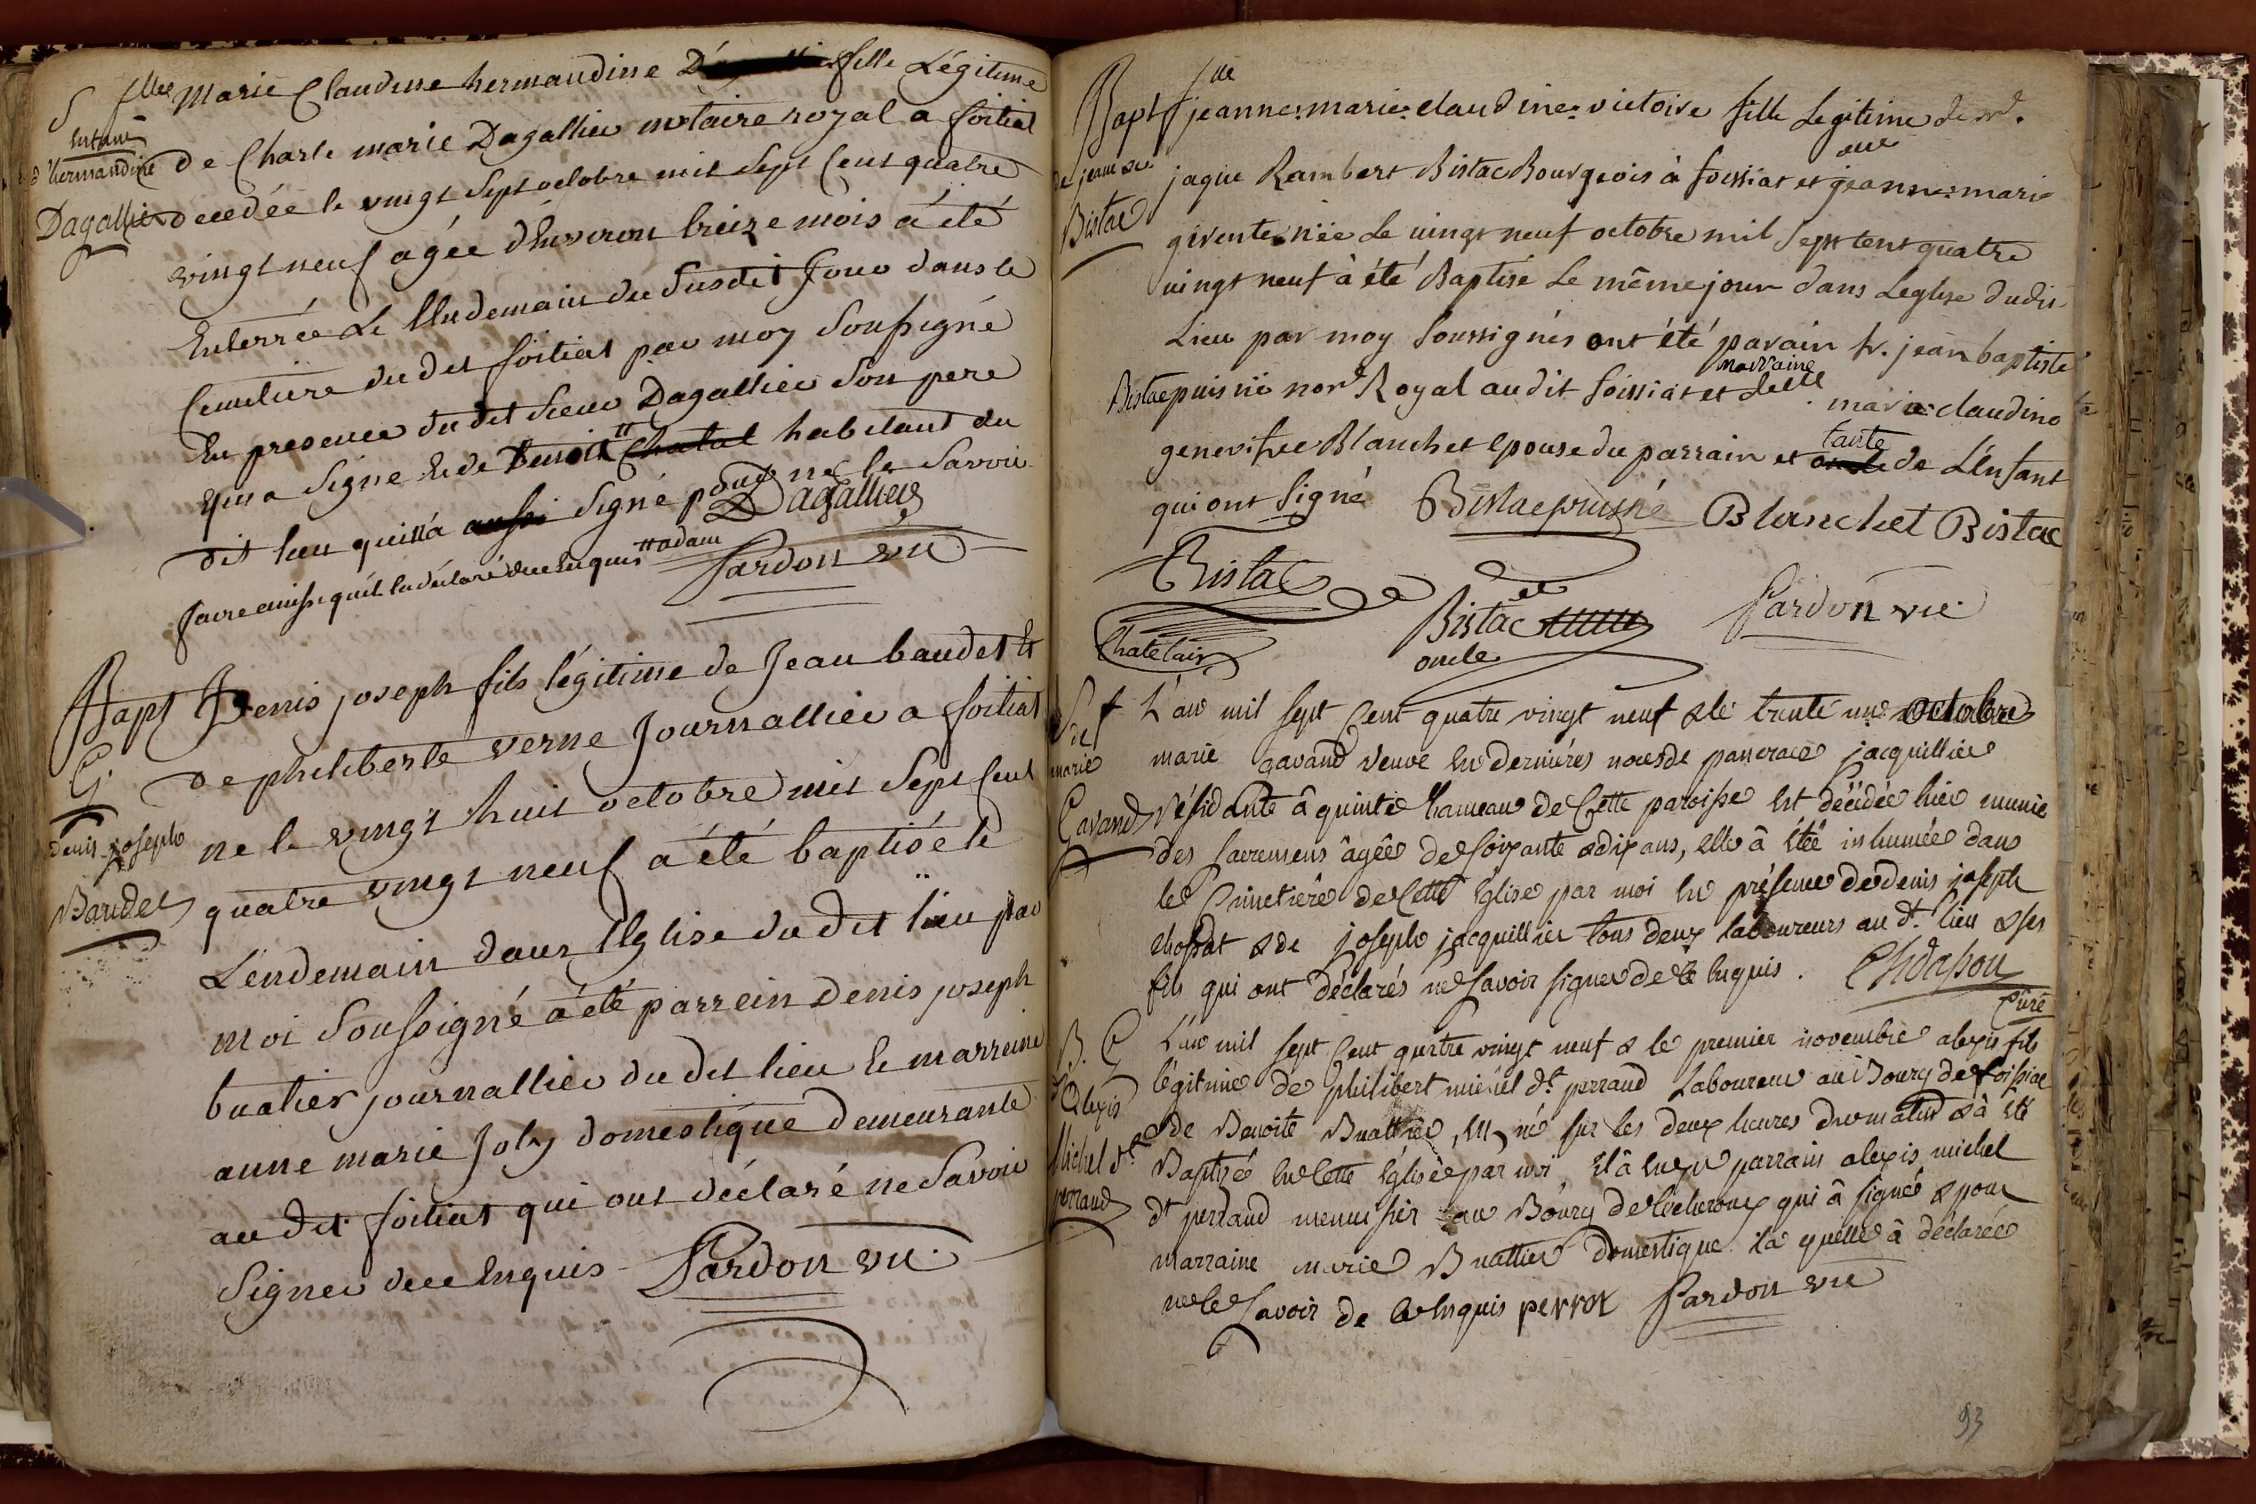 S
enfant
d'hermandine
Dagallier
flle Marie Claudine hermandine fille Légitime
de Charle marie Dagallier notaire royal a foitiat
decedée le vingt Sept octobre mil Sept Cent quatre
vingt neuf agée d'Environ treize mois a été
Enterrée Le lendemain du Susdit Jour dans le
Cemetiere du dit foitiat par moy Soussigné
En presence du dit Sieur Dagallier Son pere
qui a Signé Et de Benoit Chatal habitant du
dit lieu qui n'a aussi Signé pour ne le Savoir
faire ainsi qu'il l'a déclaré duement enquis adam
Dagallier
Pardon vic
Bapt
G
denis joseph
Baudet
Denis joseph fils légitime de Jean baudet Et
de philiberte verne Journallier a foitiat
ne le vingt huit octobre mil Sept Cent
quatre vingt neuf a été baptisé le
Lendemain dans l'Eglise du dit lieu par
moi Soussigné a été parrein Denis joseph
buatier journallier du dit lieu Et marreine
anne marie Joly domestique demeurante
au dit foitiat qui ont déclaré ne Savoir
Signer de ce Enquis Pardon vic
Bapt
de jeanne
Bistac
flle
jeanne marie claudine victoire fille Legitime de mr.
jaque Rambert Bistac Bourgeois à foissiat et jeanne marie
givente née Le vingt neuf octobre mil Sept cent quatre
vingt neuf à été Baptisé Le même jour dans Leglise dudit
Lieu par moy Soussignés ont été parain Sr. jean baptiste
Bistac puisné nore Royal audit foissiat et marraine delle. marie claudine
genevieve Blanchet epouse du parrain et tante de L'enfant
qui ont Signé Bistac puisné Blanchet Bistac
Bistac
Bistac
oncle
Pardon vic
Chatelain
Sf
de
marie
Gavand
L'an mil sept Cent quatre vingt neuf & le trente un octobre
marie gavand veuve En derniéres noces de pancrace jacquillier
résidante à quinte hameau de Cette paroisse Est décédée hier munie
des sacremens âgée de soixante & dix ans, elle à été inhumée dans
le Cimetiere de Cette Eglise par moi En présence de denis joseph
chossat & de joseph jacquillier tous deux laboureurs au dt. lieu & ses
fils qui ont déclarés ne Savoir signer de ce Enquis.
Curé
B. G
Alexis
Michel dt
perraud
L'an mil sept Cent quatre vingt neuf & le premier novembre alexis fils
légitime de philibert michel dt. perraud Laboureur au Bourg de foissiat
& de Benoite Buattier, Est né sur les deux heures du matin & à été
Baptisé En Cette Eglise par moi, Il à Eu pr parrain alexis michel
dt perraud menuisier au Bourg de lécheroux qui à signé & pour
marraine marie Buattier domestique la quelle à déclarée
ne le Savoir de ce Enquis perrot Pardon vic
93